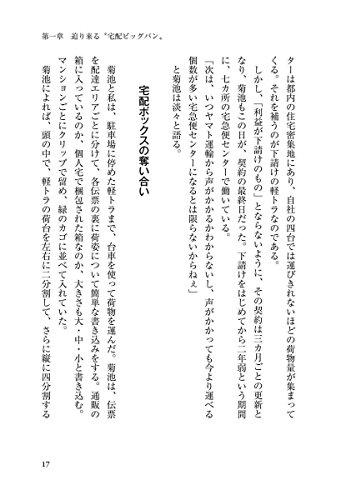 第一章 迫り来る〝宅配ビッグバン〟
ターは都内の住宅密集地にあり、自社の四台では運びきれないほどの荷物量が集まって
くる。それを補うのが下請けの軽トラなのである。
しかし、「利益が下請けのもの」とならないように、その契約は三カ月ごとの更新と
なり、菊池もこの日が、契約の最終日だった。下請けをはじめてから二年弱という期間
に、七カ所の宅急便センターで働いている。
「次は、いつヤマト運輸から声がかかるかわからないし、声がかかっても今より運べる
個数が多い宅急便センターになるとは限らないからねぇ」
と菊池は淡々と語る。
宅配ボックスの奪い合い
菊池と私は、駐車場に停めた軽トラまで、台車を使って荷物を運んだ。菊池は、伝票
を配達エリアごとに分けて、各伝票の裏に荷姿について簡単な書き込みをする。通販の
箱に入っているのか、個人宅で梱包された箱なのか、大きさも大・中・小と書き込む。
マンションごとにクリップで留め、緑のカゴに並べて入れていた。
菊池によれば、頭の中で、軽トラの荷台を左右に二分割して、さらに縦に四分割する
17